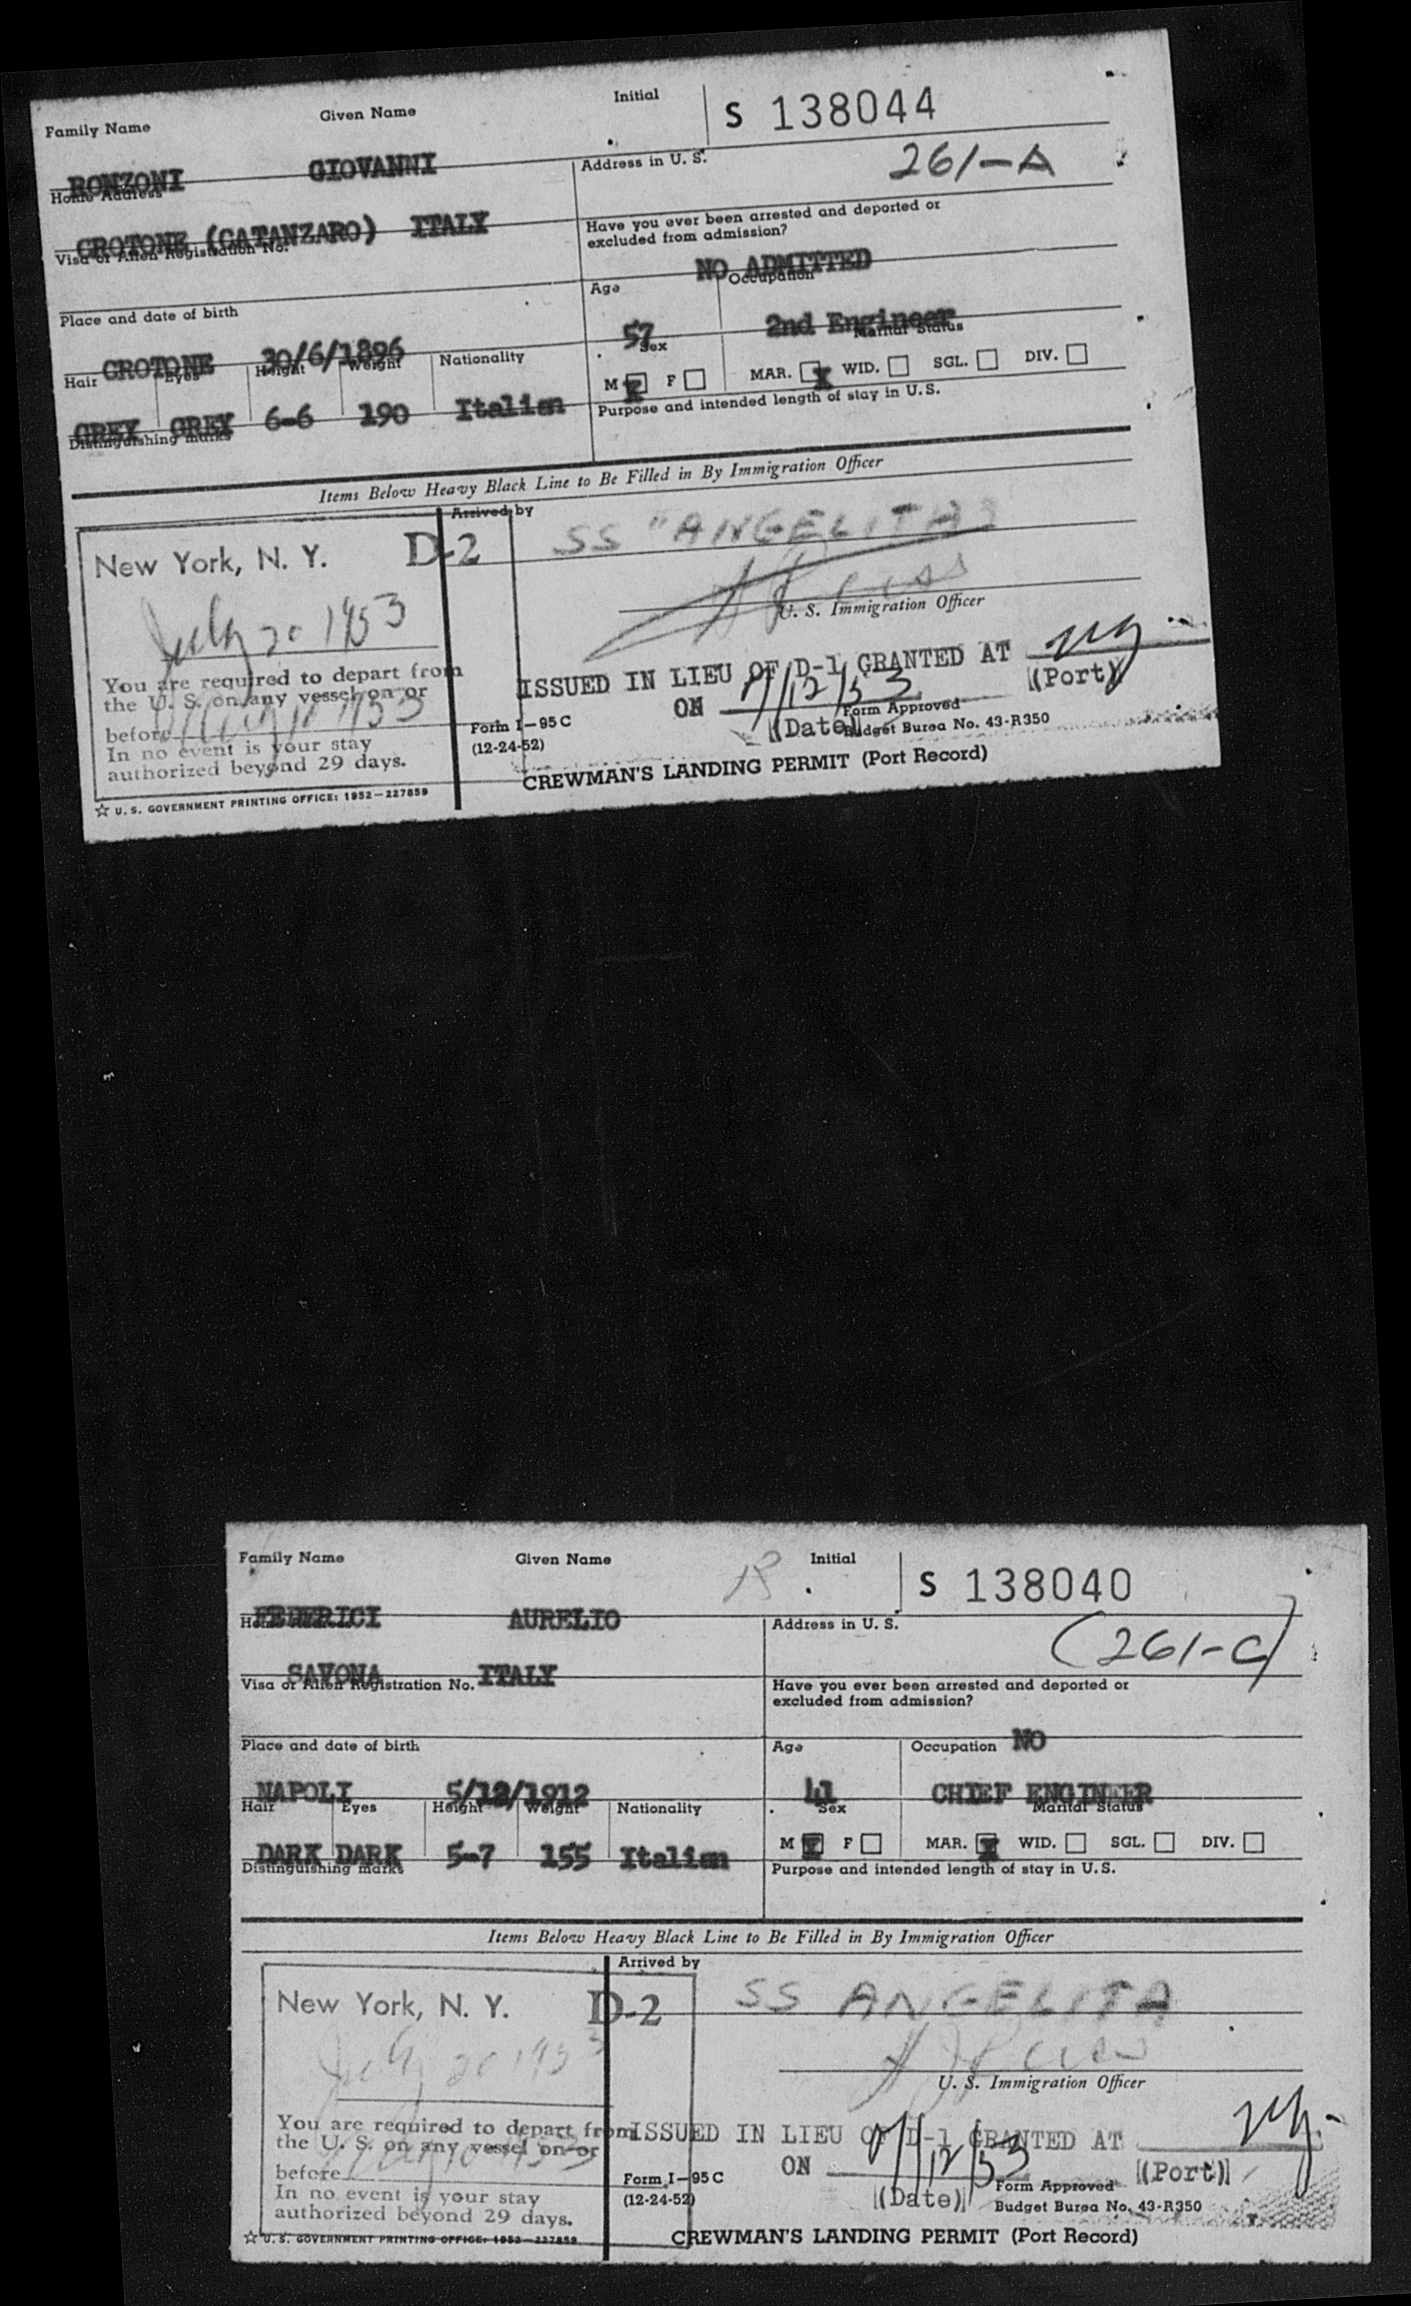 Family Name Given Name Initial S 138044
RONZONI GIOVANNI
Home Address Address in U. S. 261-A
CROTONE (CATANZARO) ITALY
Visa or Alien Registration No. Have you ever been arrested and deported or
excluded from admission?
NO ADMITTED
Place and date of birth Age Occupation
CROTONE 30/6/1896 57 2nd Engineer
Hair Eyes Height Weight Nationality Sex Marital Status
M X F MAR. X WID. SGL. DIV.
GREY GREY 6-6 190 Italian
Distinguishing marks Purpose and intended length of stay in U.S.
Items Below Heavy Black Line to Be Filled in By Immigration Officer
Arrived by
New York, N. Y. D-2 SS "ANGELITA"
July 20 1953
U. S. Immigration Officer
You are required to depart from
the U. S. on any vessel on or
before
In no event is your stay
authorized beyond 29 days.
ISSUED IN LIEU OF D-1 GRANTED AT NY
ON 7/12/53 (Port)
(Date)
Form I-95 C
(12-24-52)
Form Approved
Budget Burea No. 43-R350
CREWMAN'S LANDING PERMIT (Port Record)
☆ U. S. GOVERNMENT PRINTING OFFICE: 1952-227859
Family Name Given Name Initial S 138040
FEDERICI AURELIO
Home Address Address in U. S. (261-C)
SAVONA ITALY
Visa or Alien Registration No. Have you ever been arrested and deported or
excluded from admission?
NO
Place and date of birth Age Occupation
NAPOLI 5/12/1912 41 CHIEF ENGINEER
Hair Eyes Height Weight Nationality Sex Marital Status
M X F MAR. X WID. SGL. DIV.
DARK DARK 5-7 155 Italian
Distinguishing marks Purpose and intended length of stay in U.S.
Items Below Heavy Black Line to Be Filled in By Immigration Officer
Arrived by
New York, N. Y. D-2 SS ANGELITA
July 20 1953
U. S. Immigration Officer
You are required to depart from
the U. S. on any vessel on or
before
In no event is your stay
authorized beyond 29 days.
ISSUED IN LIEU OF D-1 GRANTED AT NY
ON 7/12/53 (Port)
(Date)
Form I-95 C
(12-24-52)
Form Approved
Budget Burea No. 43-R350
CREWMAN'S LANDING PERMIT (Port Record)
☆ U. S. GOVERNMENT PRINTING OFFICE: 1952-227859